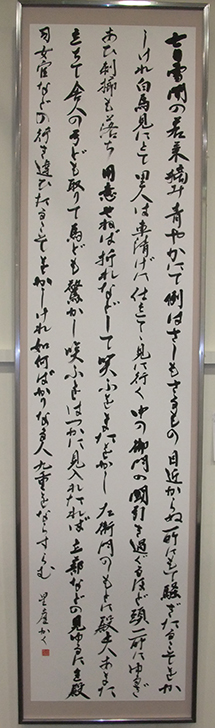 七日雪間の若菜摘み青やかにて例はさしもさるもの目近からぬ所にもて騒ぎたるこそをか
しけれ白馬見にとて里人は車清げに仕立てて見に行く中の御門の閾引き過ぐるほど頭一所にゆるぎ
あひ刺櫛も落ち用意せねば折れなどして笑ふもまたをかし左衛門のもとに殿上人あまた
立ちて舎人の弓ども取りて馬ども驚かし笑ふをはつかに見入れたれば立蔀などの見ゆるに主殿
司女官などの行き違ひたるこそをかしけれ如何ばかりなる人九重をならすらむ